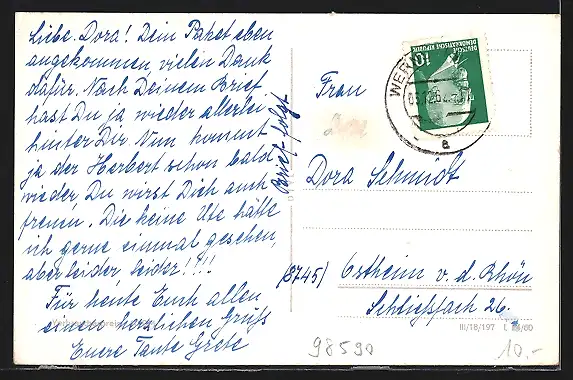 Liebe Dora! Dein Paket eben
angekommen, vielen Dank
dafür. Nach Deinem Brief
hast Du ja wieder allerlei
hinter Dir. Nun kommt
ja der Herbert schon bald
wieder, Du wirst Dich auch
freuen. Die keine Ute hätte
ich gerne einmal gesehen,
aber leider leider!!!!
Für heute Euch allen
einen herzlichen Gruß
Eure Tante Grete
Brief folgt
DEUTSCHE
DEMOKRATISCHE REPUBLIK
10
WER
a
Frau
Dora Schmidt
(8745) Ostheim v. d. Rhön
Schließfach 26.
III/18/197
98590
10.-